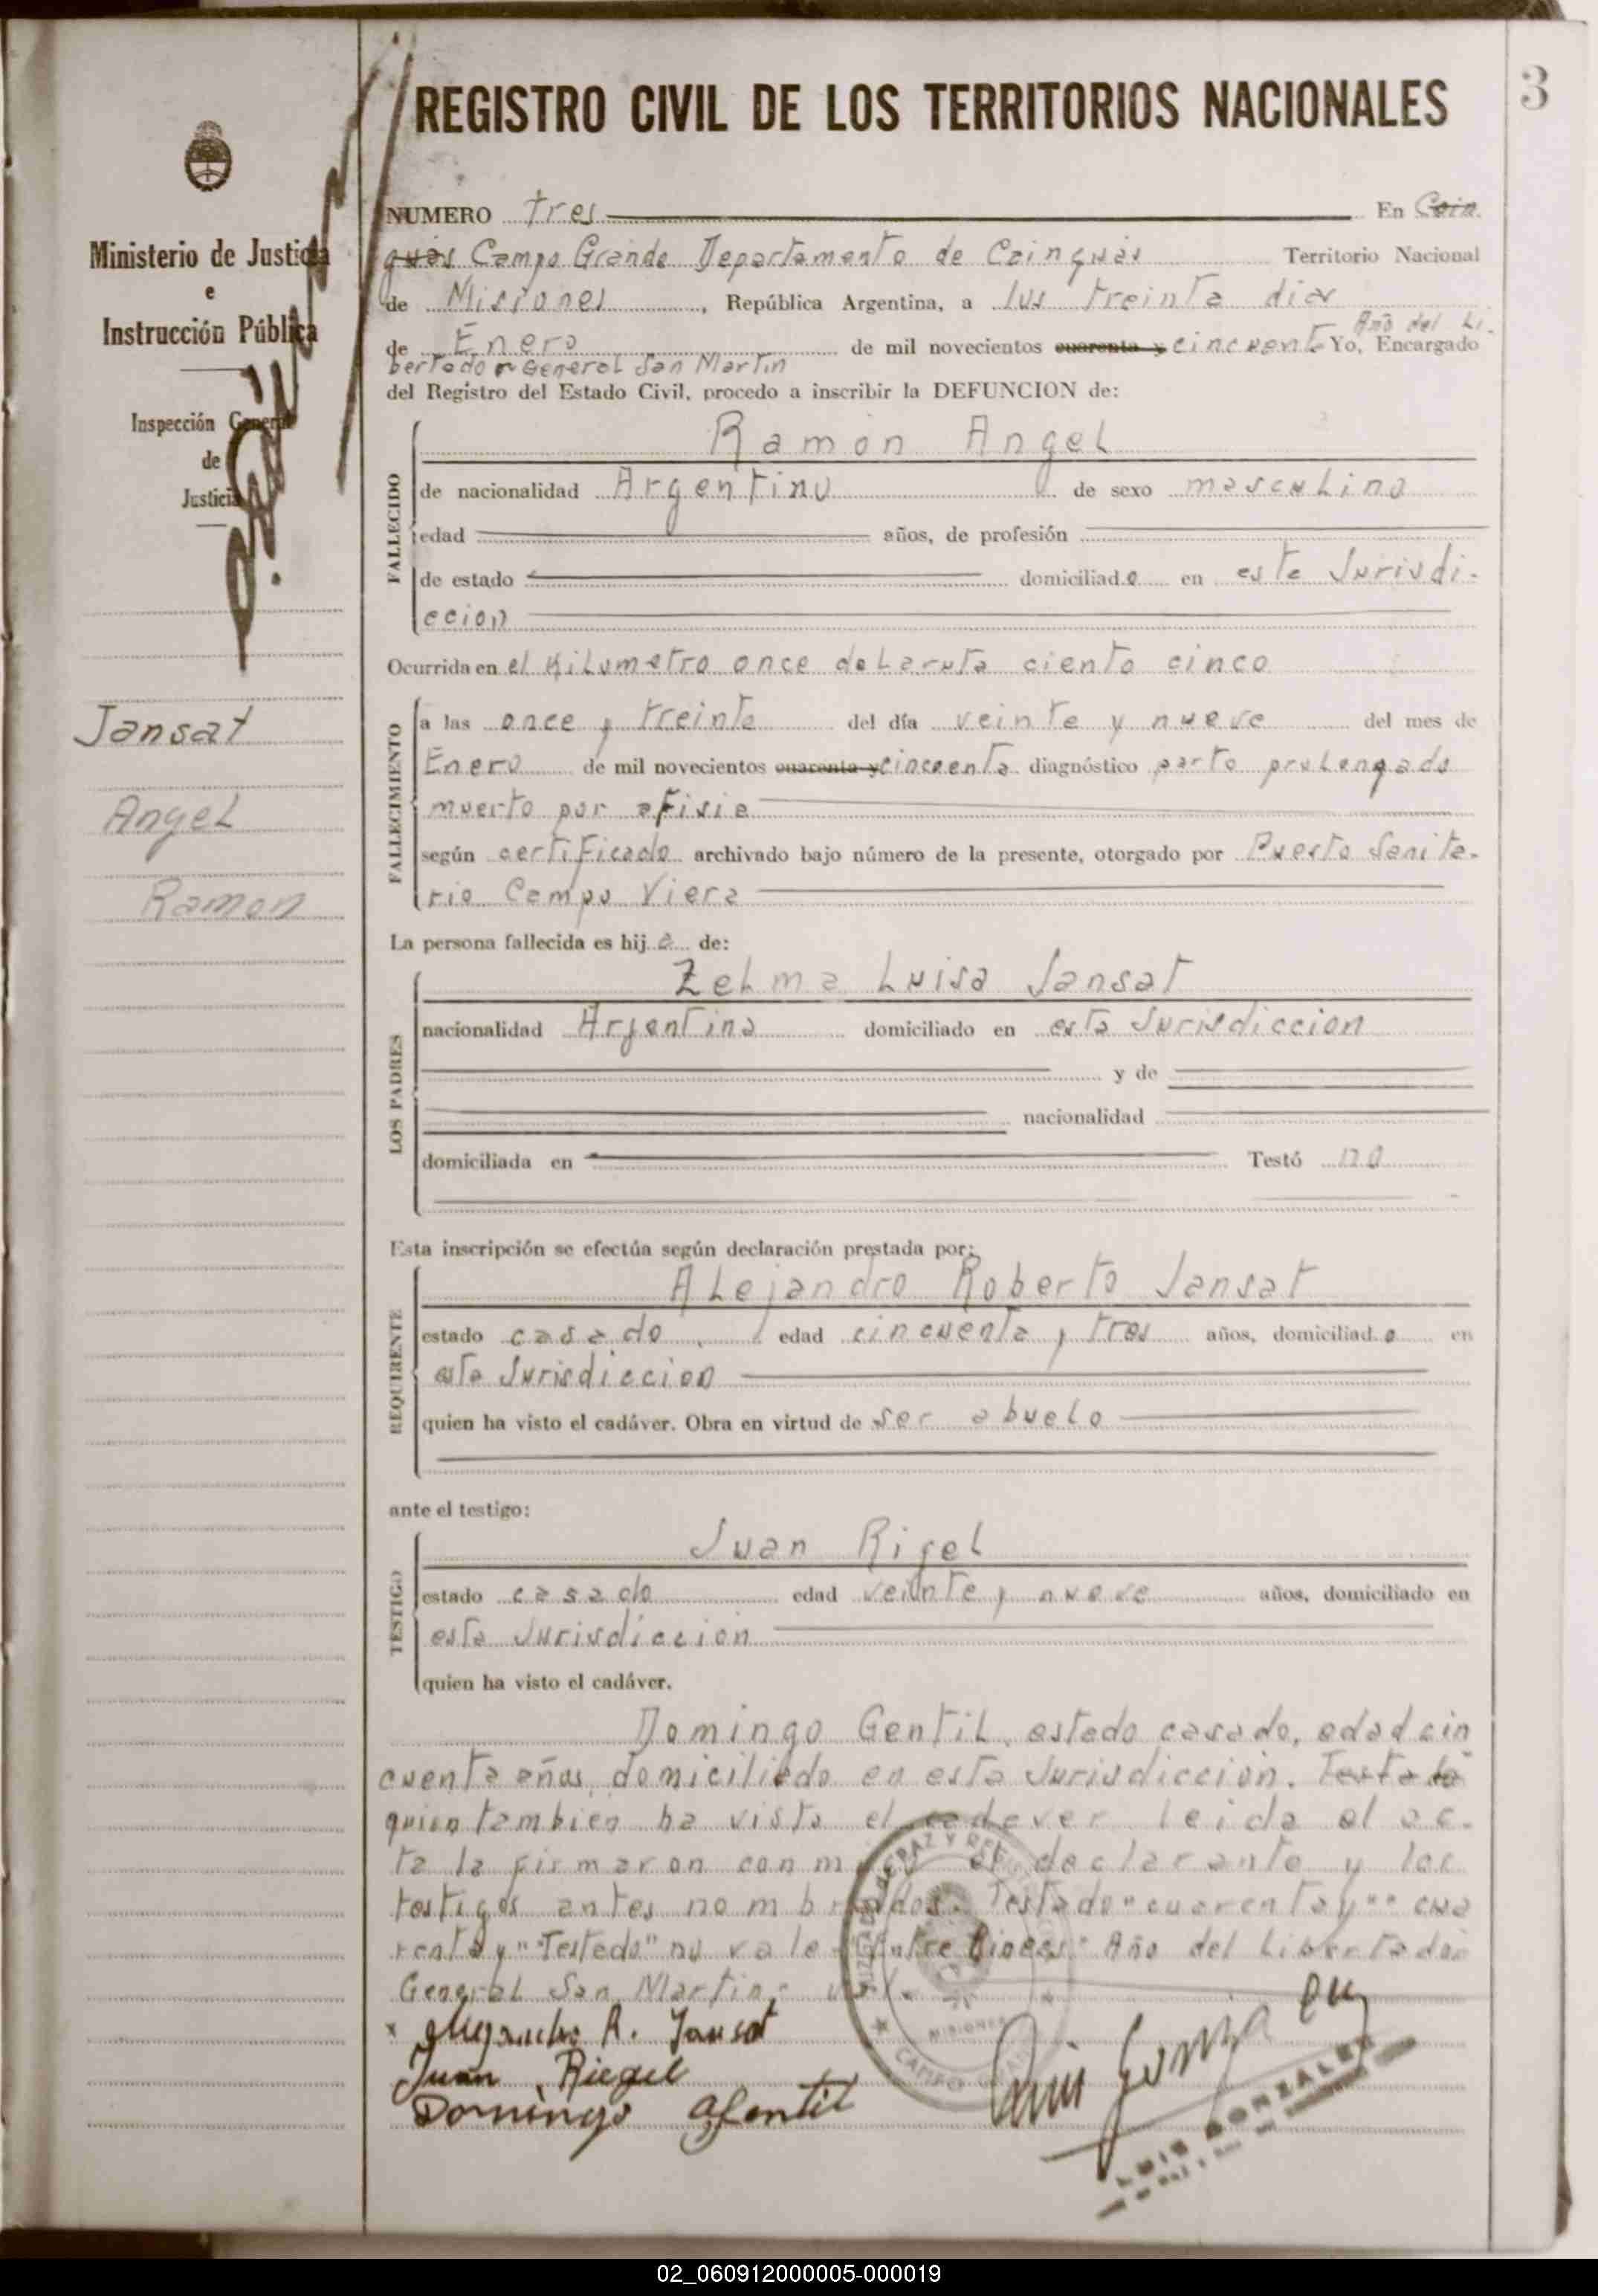 3
REGISTRO CIVIL DE LOS TERRITORIOS NACIONALES
Ministerio de Justicia
e
Instrucción Pública
Inspección General
de
Justicia
Jansat
Angel
Ramon
NUMERO tres En Cain
guás Campo Grande Departamento de Cainguás Territorio Nacional
de Misiones, República Argentina, a los treinta dias
Año del Li-
de Enero de mil novecientos cuarenta y cincuenta Yo, Encargado
bertador General San Martin
del Registro del Estado Civil, procedo a inscribir la DEFUNCION de:
FALLECIDO
Ramón Angel
de nacionalidad Argentino de sexo masculino
edad años, de profesión
de estado domiciliado en esta Jurisdi-
ccion
Ocurrida en el Kilometro once de la ruta ciento cinco
FALLECIMIENTO
a las once y treinta del día veinte y nueve del mes de
Enero de mil novecientos cuarenta y cincuenta diagnóstico parto prolongado
muerto por afisia
según certificado archivado bajo número de la presente, otorgado por Puesto Sanita-
rio Campo Viera
La persona fallecida es hij de:
LOS PADRES
Zelma Luisa Jansat
nacionalidad Argentina domiciliado en esta Jurisdiccion
y de
nacionalidad
domiciliada en Testó no
Esta inscripción se efectúa según declaración prestada por:
REQUIRENTE
Alejandro Roberto Jansat
estado casado edad cincuenta y tres años, domiciliado en
esta Jurisdiccion
quien ha visto el cadáver. Obra en virtud de ser abuelo
ante el testigo:
TESTIGO
Juan Rigel
estado casado edad veinte y nueve años, domiciliado en
esta Jurisdiccion
quien ha visto el cadáver.
Domingo Gentil, estado casado, edad cin
cuenta años, domiciliado en esta Jurisdicción. Testado
quien tambien ha visto el cadaver leida el ac-
ta la firmaron conmigo el declarante y los
testigos antes nombrados. Testado "cuarenta y" "cua
renta y" "Testado" no vale "Entre lineas" Año del Libertador
General San Martin: vale.
Alejandro R. Jansat
Juan Riegel
Domingo Gentil
MISIONES
CAMPO
LUIS GONZALEZ
02_060912000005-000019